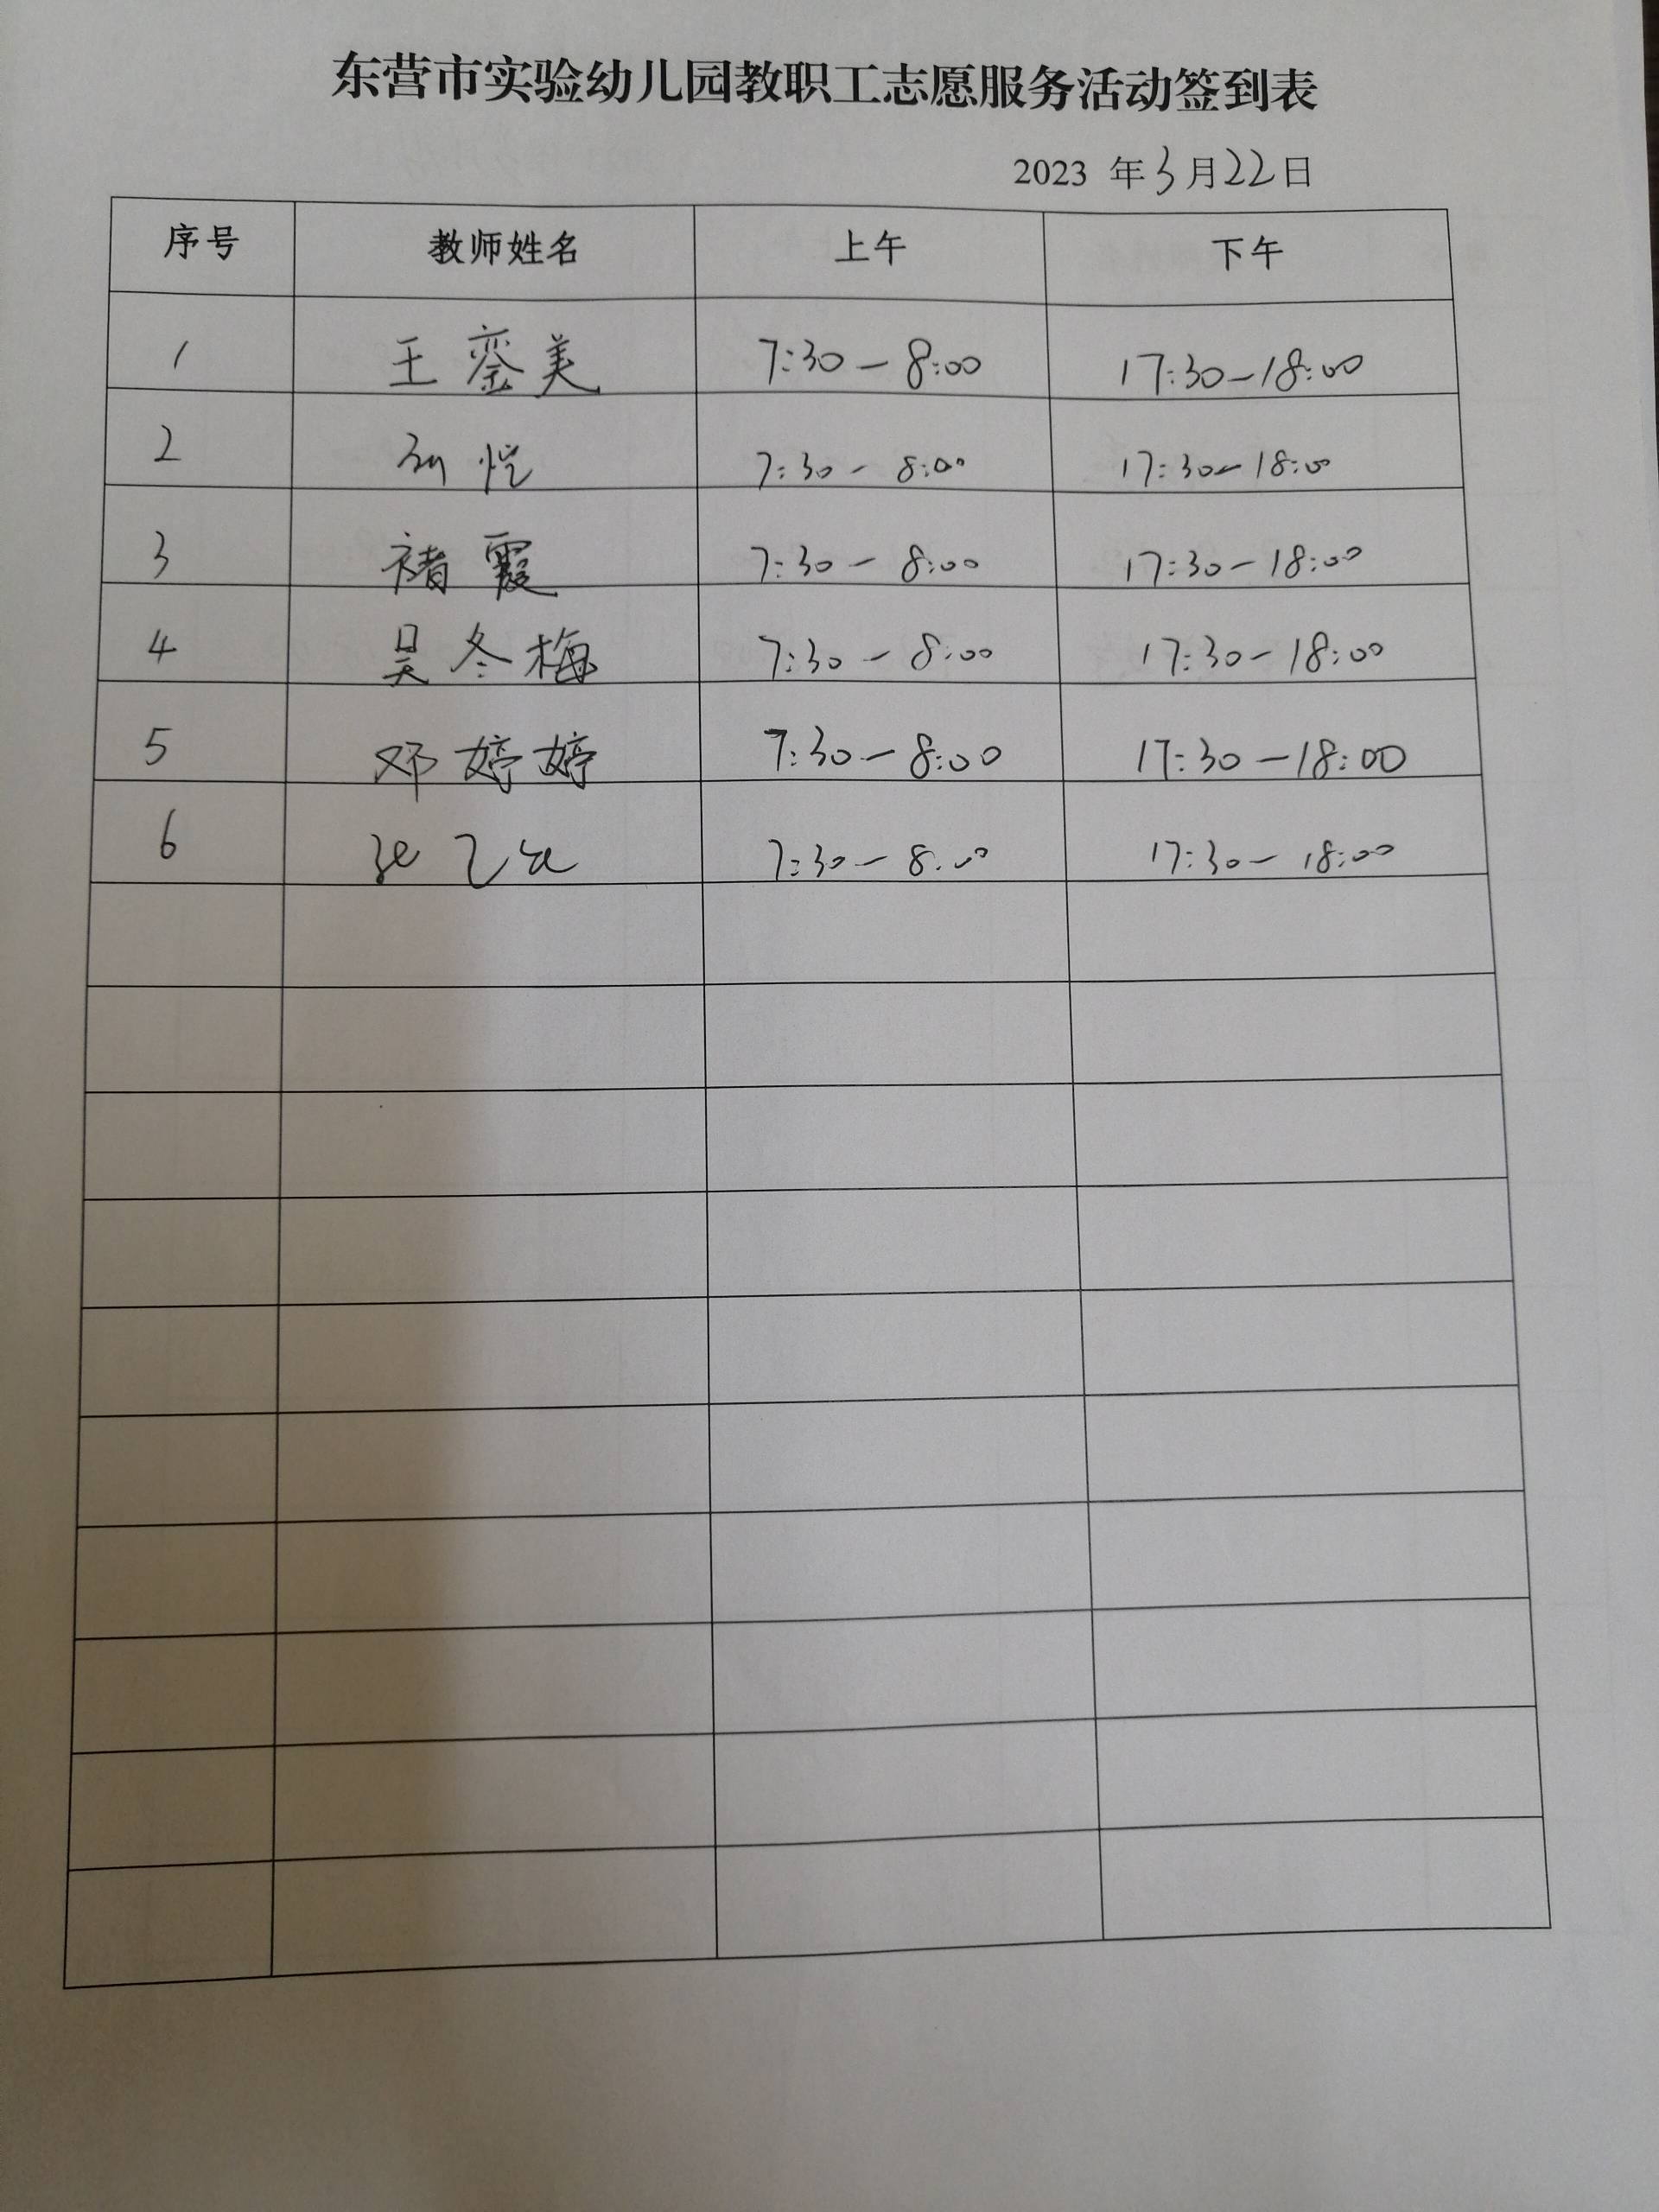 东营市实验幼儿园教职工志愿服务活动签到表
2023 年3月22日
序号 教师姓名 上午 下午
1 王銮美 7:30-8:00 17:30-18:00
2 7:30-8:00 17:30-18:00
3 褚霞 7:30-8:00 17:30-18:00
4 吴冬梅 7:30-8:00 17:30-18:00
5 邓婷婷 7:30-8:00 17:30-18:00
6 7:30-8:00 17:30-18:00